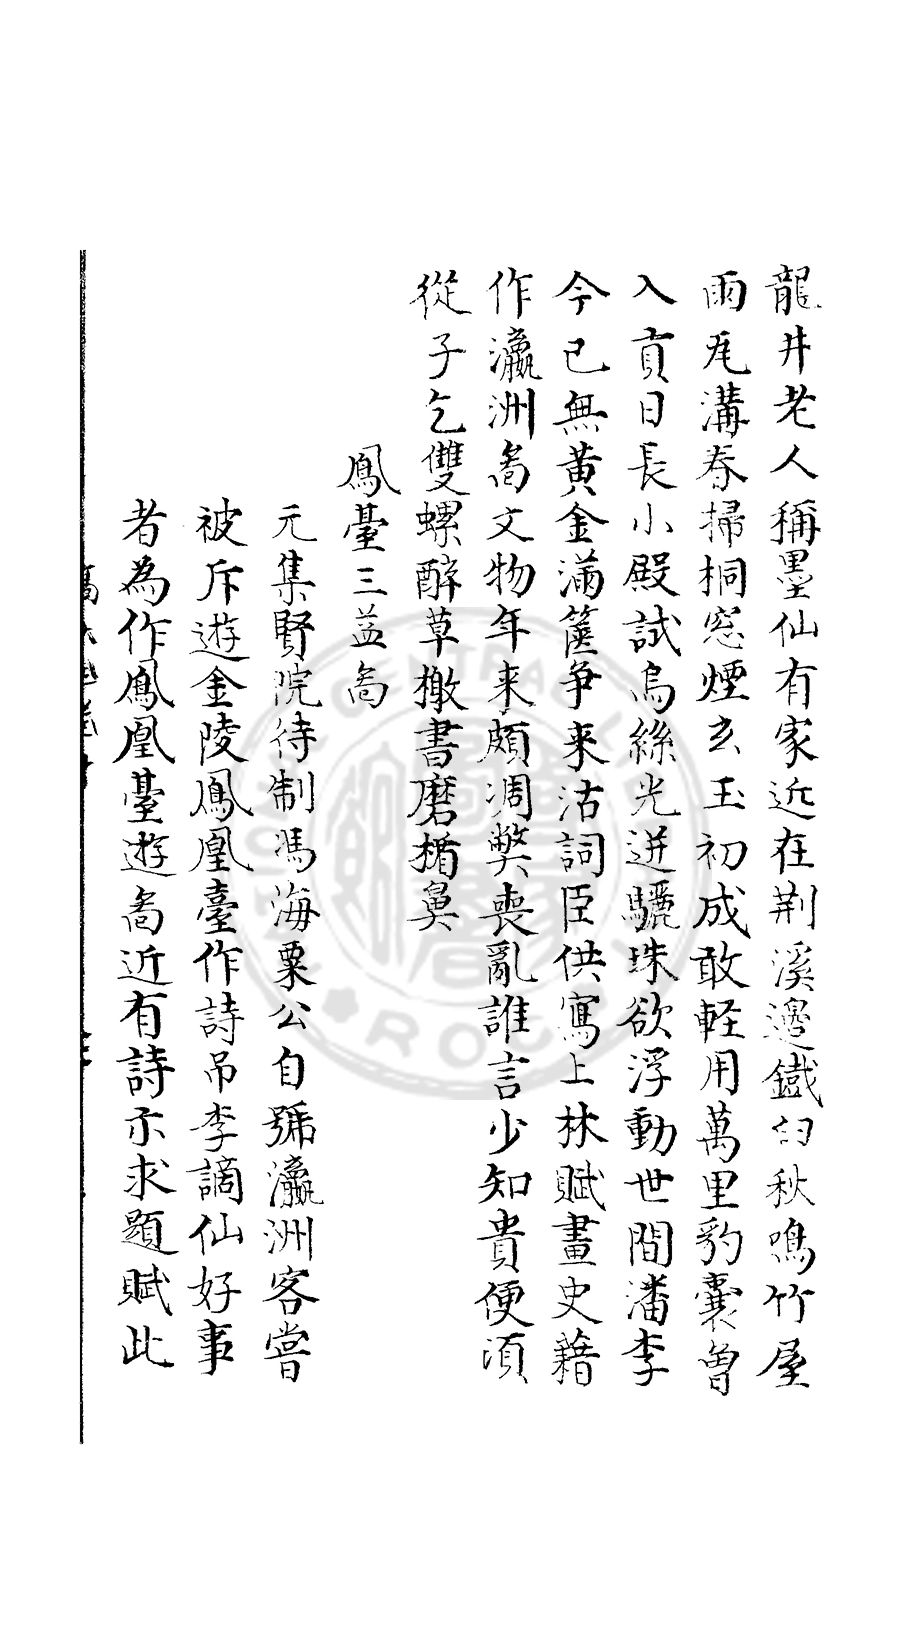 龍井老人稱墨仙有家近在荆溪邊鐵臼秋鳴竹屋
雨瓦溝春掃桐窓煙玄玉初成敢軽用萬里豹囊曽
入貢日長小殿試烏絲光迸驪珠欲浮動世間潘李
今已無黄金滿篋争来沽詞臣供寫上林賦畫史藉
作瀛洲啚文物年来頗凋弊喪亂誰言少知貴便湏
從子乞雙螺醉草檄書磨楯鼻
鳳臺三益啚
元集賢院待制馮海粟公自號瀛洲客甞
被斥遊金陵鳳凰臺作詩吊李謫仙好事
者為作鳳凰臺遊啚近有詩示求題賦此